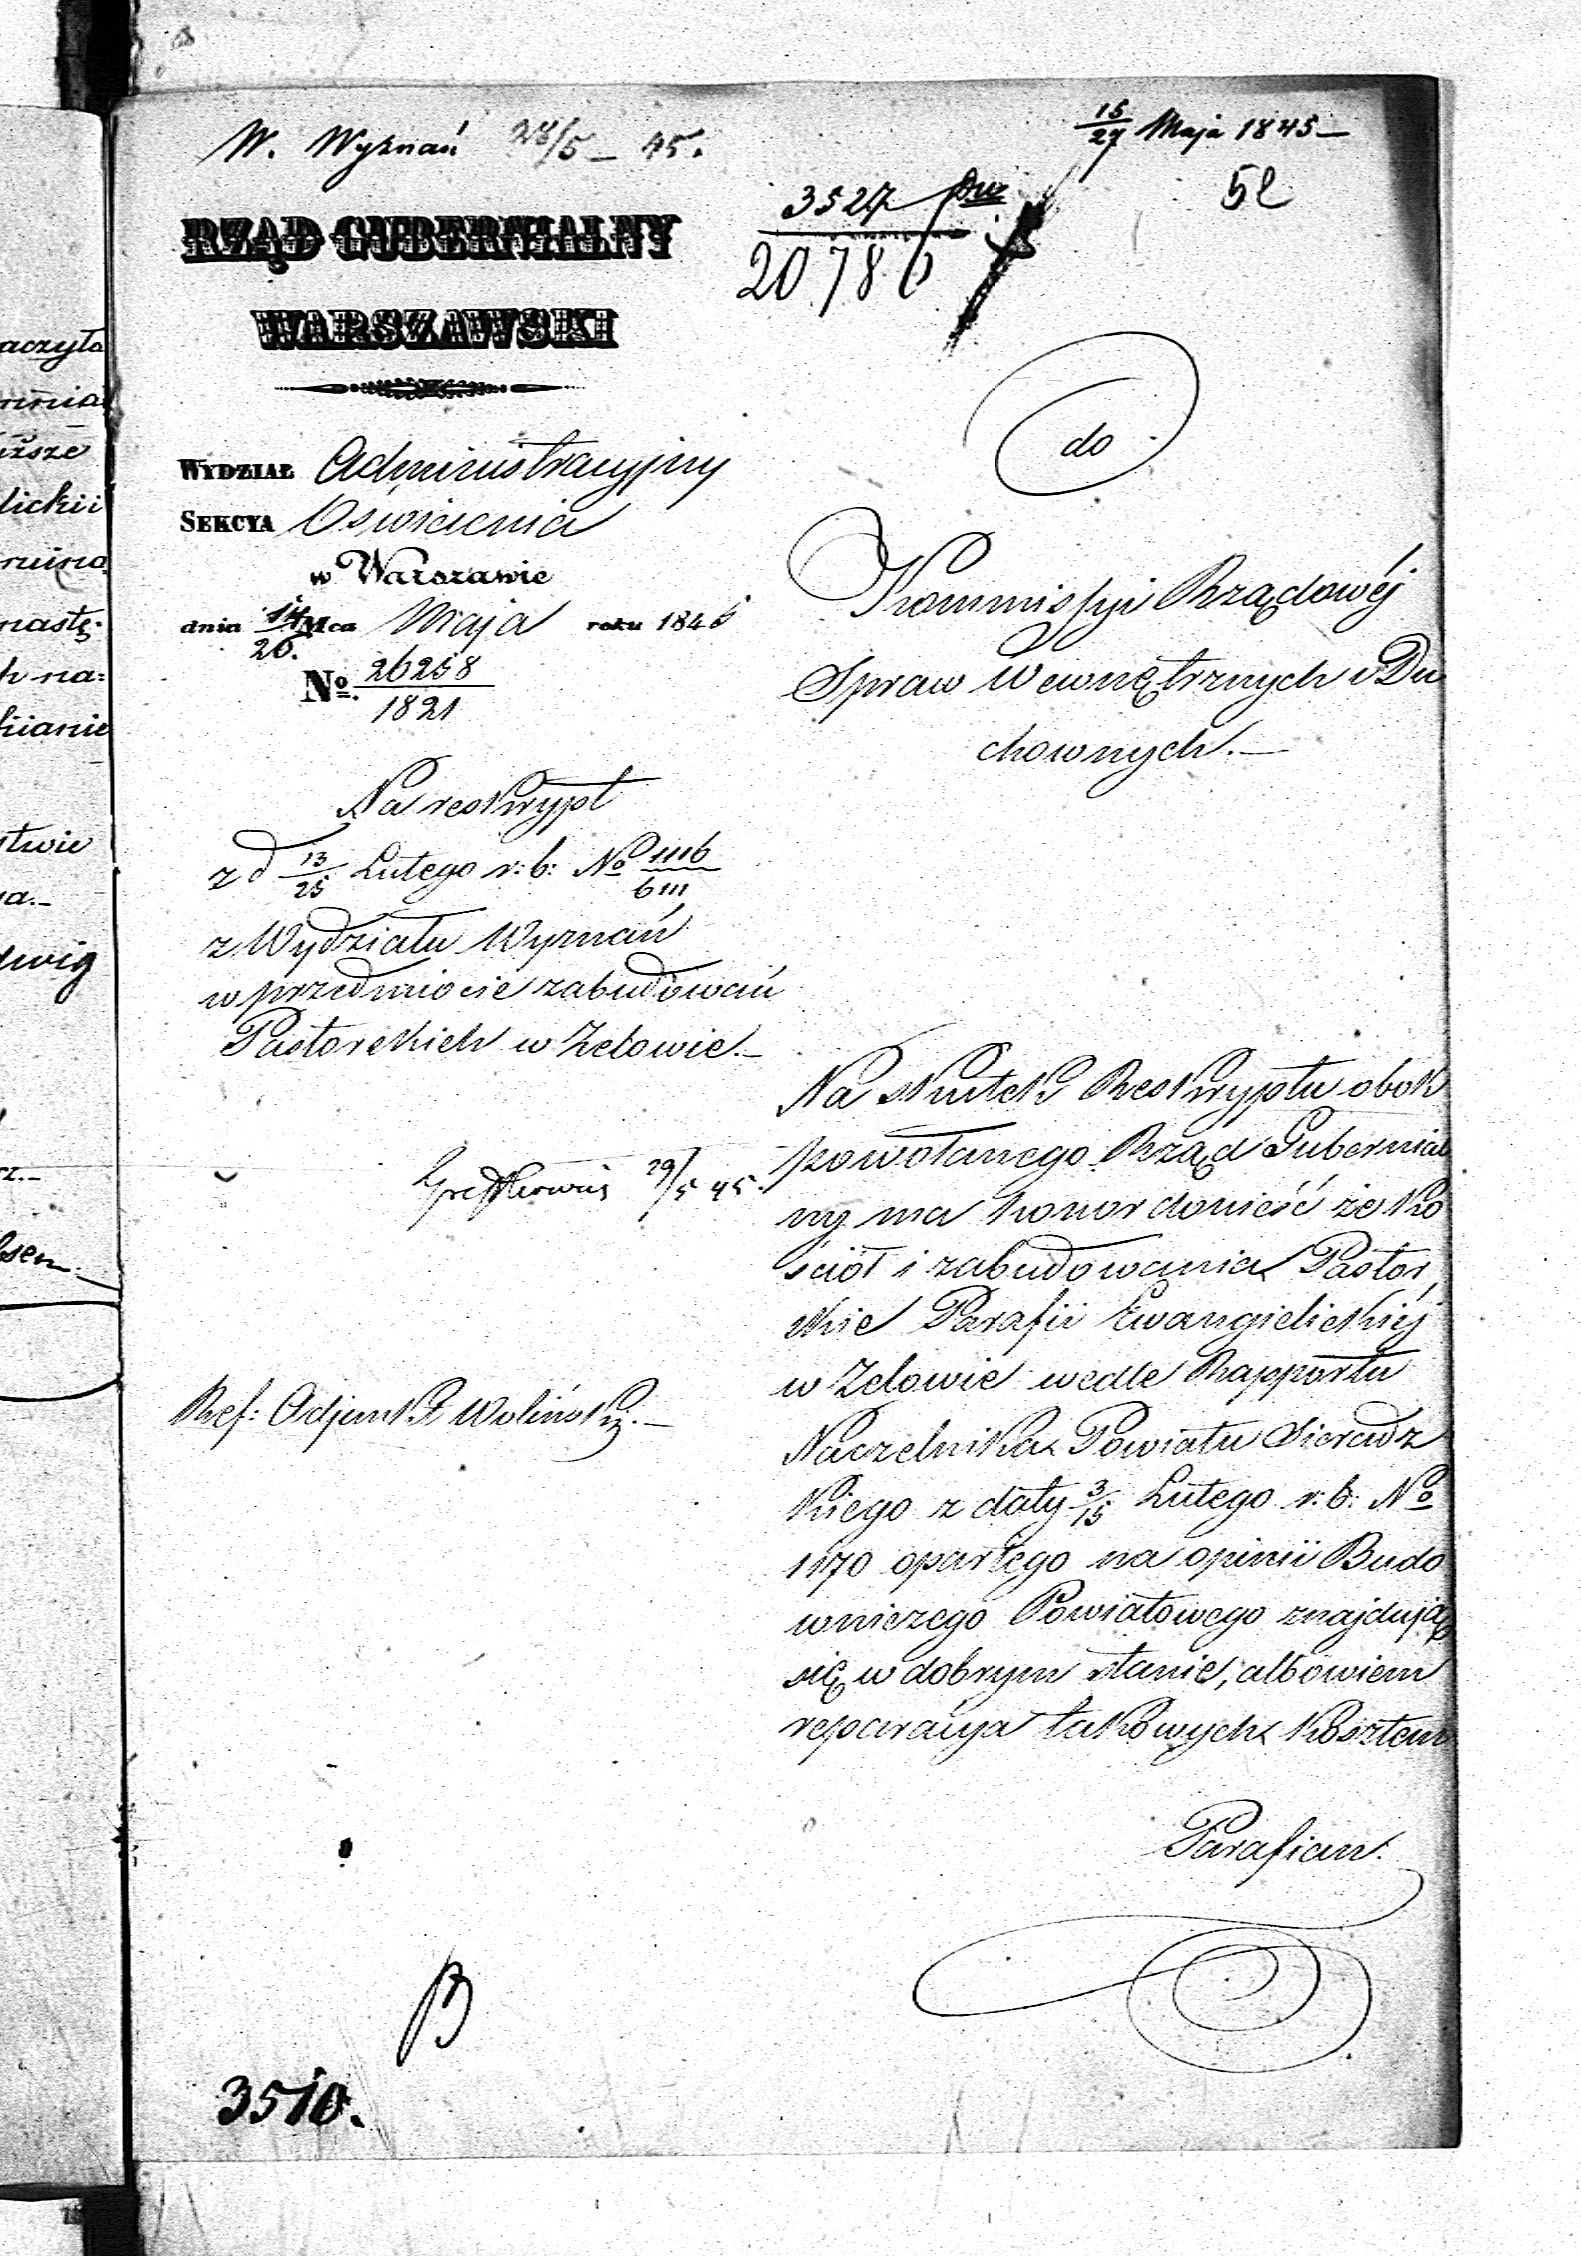 15/27 Maja 1845 —
W. Wyznań 28/5 — 45.
52
3527
20786
RZĄD GUBERNIALNY
WARSZAWSKI
WYDZIAŁ Administracyjny
SEKCYA Oświecenia
w Warszawie
dnia 14/26. Mca Maja roku 1845
No. 26258/1821
do
Kommissyi Rządowéj
Spraw Wewnętrznych i Du
chownych. —
Na reskrypt
z d 13/25 Lutego r: b: No 1116/6111
z Wydziału Wyznań
w przedmiocie zabudowań
Pastorskich w Zelowie. —
29/5 45.
Ref: Adjunkt Woliński. —
Na skutek Reskryptu obok
powołanego Rząd Gubernial
ny ma honor donieść że Ko
ściół i zabudowania Pastor
skie Parafii Ewangielickiéj
w Zelowie wedle Rapportu
Naczelnika Powiatu Sieradz
kiego z daty 3/15 Lutego r: b: No
1170 opartego na opinii Budo
wniczego Powiatowego znajdują
się w dobrym stanie, albowiem
reparacya takowych kosztem
Parafian.
3510.
aczyła
lickii
nastę-
h na:
stwie
dwig